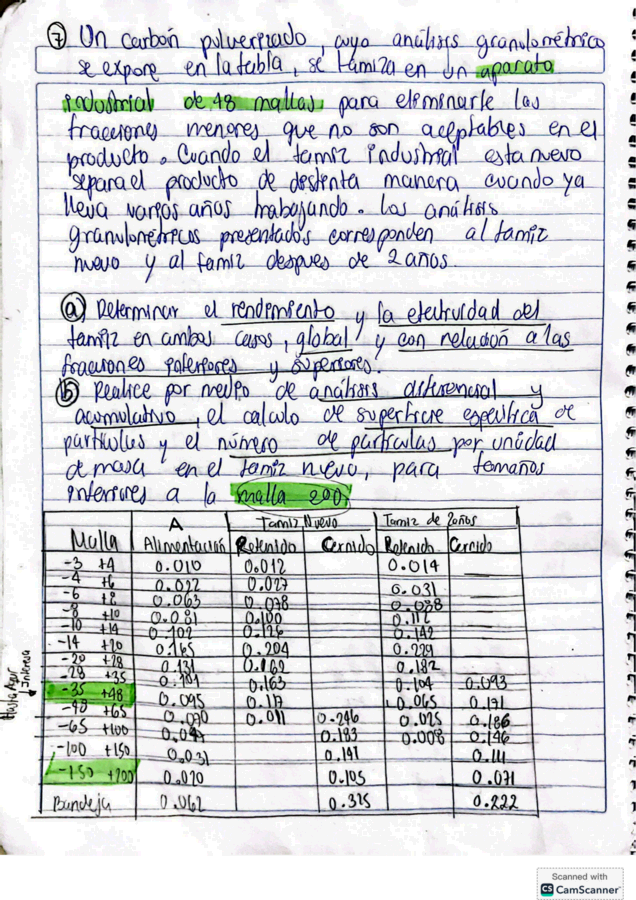 ⑦ Un carbón pulverizado, cuyo análisis granulométrico
se expone en la tabla, se tamiza en un aparato
industrial de 48 mallas, para eliminarle las
fracciones menores que no son aceptables en el
producto. Cuando el tamiz industrial esta nuevo
separa el producto de destinta manera cuando ya
lleva varios años trabajando. Los análisis
granulométricos presentados corresponden al tamiz
nuevo y al tamiz despues de 2 años.
ⓐ Determinar el rendimiento y la efectividad del
tamiz en ambos casos, global y con relación a las
fracciones inferiores y superiores.
ⓑ Realice por medio de análisis diferencial y
acumulativo, el calculo de superficie especifica de
particulas y el número de particulas por unidad
de masa en el tamiz nuevo, para tamaños
inferiores a la malla 200.
A Tamiz Nuevo Tamiz de 2 años
Malla Alimentación Retenido Cernido Retenido Cernido
-3 +4 0.010 0.012 0.014
-4 +6 0.022 0.027 0.031
-6 +8 0.063 0.078 0.088
-8 +10 0.081 0.100 0.112
-10 +14 0.102 0.126 0.142
-14 +20 0.165 0.204 0.229
-20 +28 0.131 0.162 0.182
-28 +35 0.163 0.104 0.093
-35 +48 0.095 0.117 0.065 0.171
-48 +65 0.070 0.011 0.246 0.025 0.186
-65 +100 0.183 0.008 0.146
-100 +150 0.031 0.141 0.111
-150 +200 0.020 0.105 0.071
Bandeja 0.062 0.325 0.222
Interesa
Scanned with
CS CamScanner